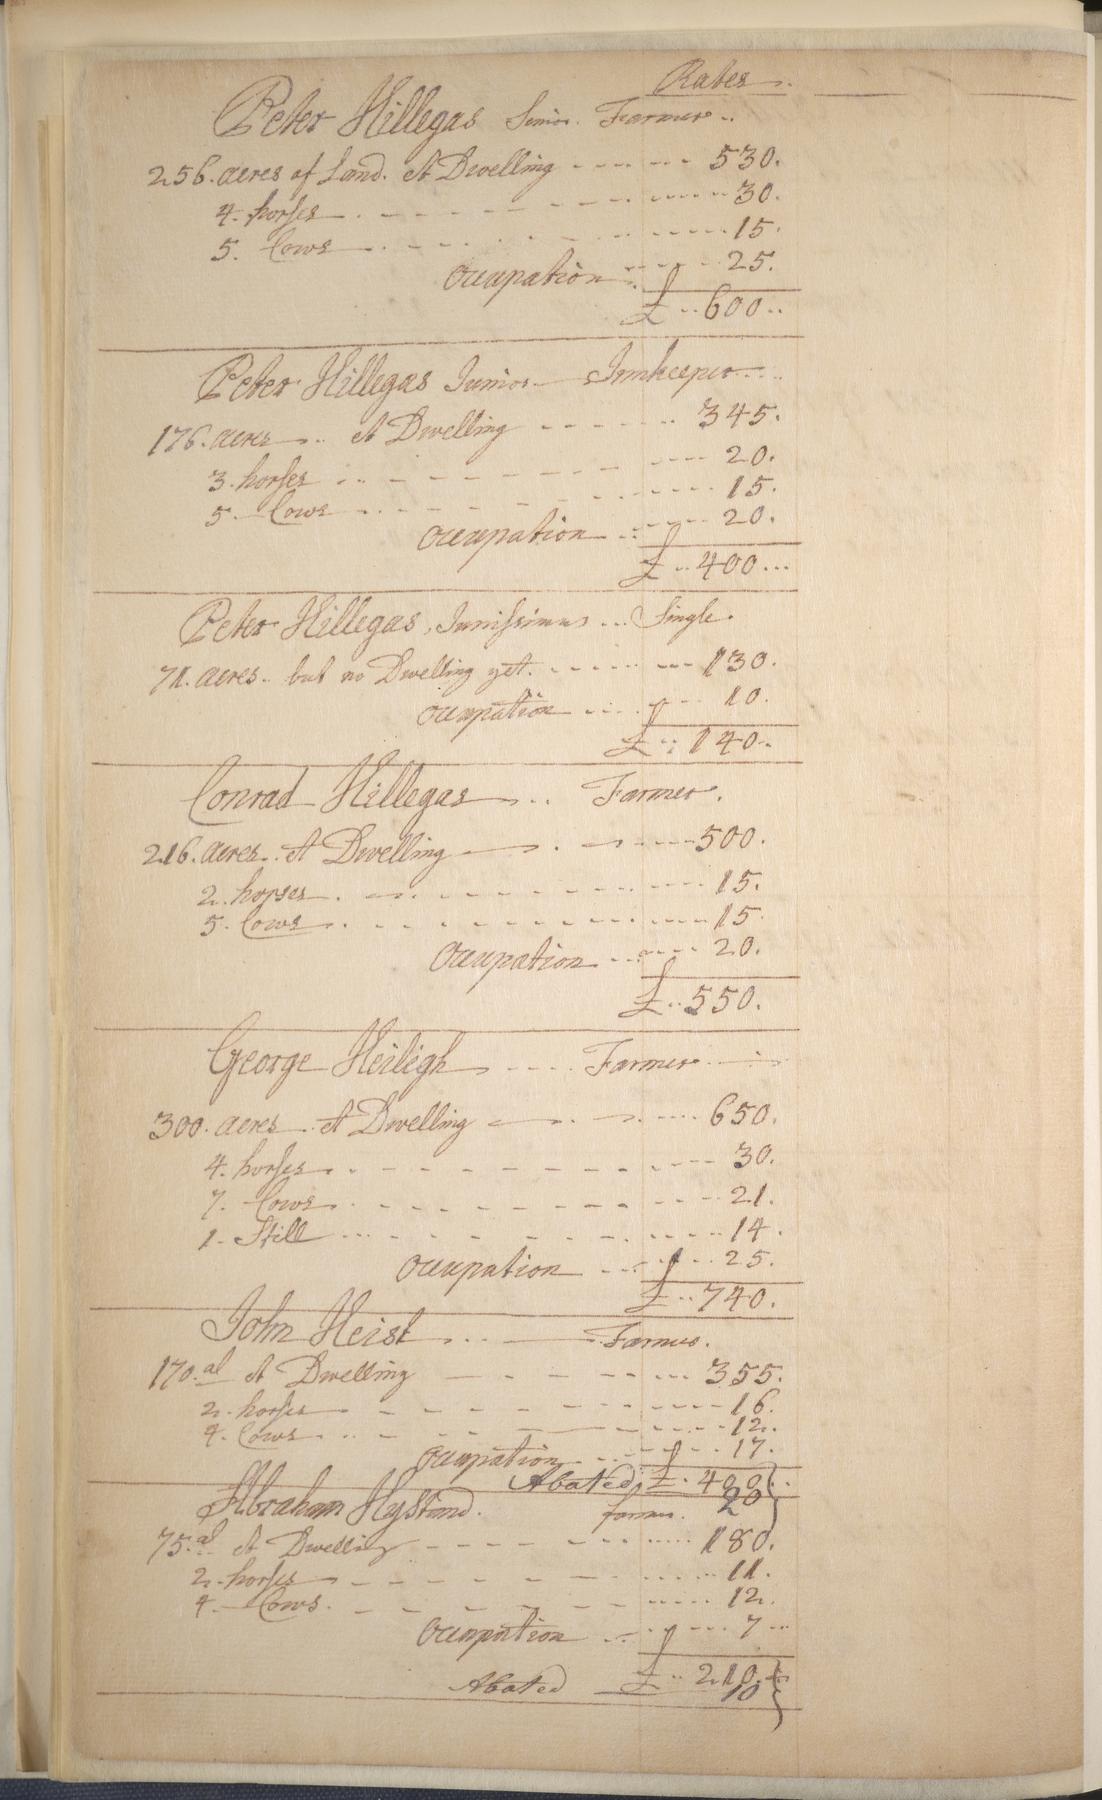 Rates
Peter Hillegas Senior. Farmer..
256. acres of Land. A Dwelling ------ 530.
4. horses ------ 30.
5. Cows ------ 15.
Occupation ---- 25.
£ .. 600..
Peter Hillegas Junior Innkeeper
176. acres .. A Dwelling ------ 345.
3. horses ------ 20.
5 Cows ------ 15.
Occupation ---- 20.
£ .. 400...
Peter Hillegas, Junissimus ... Single.
71. acres.. but no Dwelling yet. ------ 130.
Occupation ---- 10.
£ .. 140..
Conrad Hillegas .. Farmer.
216. acres.. A Dwelling . ---- 500.
2. horses . ------ 15.
5. Cows . ------ 15.
Occupation ---- 20.
£ .. 550.
George Heiligh .... Farmer
300. acres. A Dwelling . ---- 650.
4. horses ------ 30.
7. Cows ------ 21.
1. Still ------ 14.
Occupation ---- 25.
£ .. 740.
John Heist ... Farmer.
170. al A Dwelling ------ 355.
2. horses ------ 16.
4. Cows ------ 12.
Occupation ---- 17.
Abated £ . 400
20
Abraham Hystand. farmer.
75. al A Dwelling ------ 180.
2. horses ------ 11.
4. Cows. ------ 12.
Occupation ---- 7
£ .. 210.
Abated 10